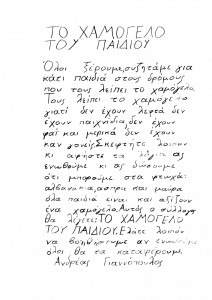 ΤΟ ΧΑΜΟΓΕΛΟ
ΤΟΥ ΠΑΙΔΙΟΥ
Όλοι ξέρουμε, συζητάμε για
κάτι παιδιά στους δρόμους
που τους λείπει το χαμόγελο.
Τους λείπει το χαμόγελο
γιατί δεν έχουν λεφτά δεν
έχουν παιχνίδια, δεν έχουν
φαΐ και μερικά δεν έχουν
καν γονείς. Σκεφτήτε λοιπόν
κι αφήστε τα λόγια ας
ενωθούμε κι ας δώσουμε
ότι μπορούμε στα φτωχά:
αλβανάκια, άσπρα και μαύρα
όλα παιδιά είναι και αξίζουν
ένα χαμόγελο. Αυτός ο σύλλογος
θα λέγεται: ΤΟ ΧΑΜΟΓΕΛΟ
ΤΟΥ ΠΑΙΔΙΟΥ. Ελάτε λοιπόν
να βοηθήσουμε αν ενωθούμε
όλοι θα τα καταφέρουμε.
Ανδρέας Γιαννόπουλος